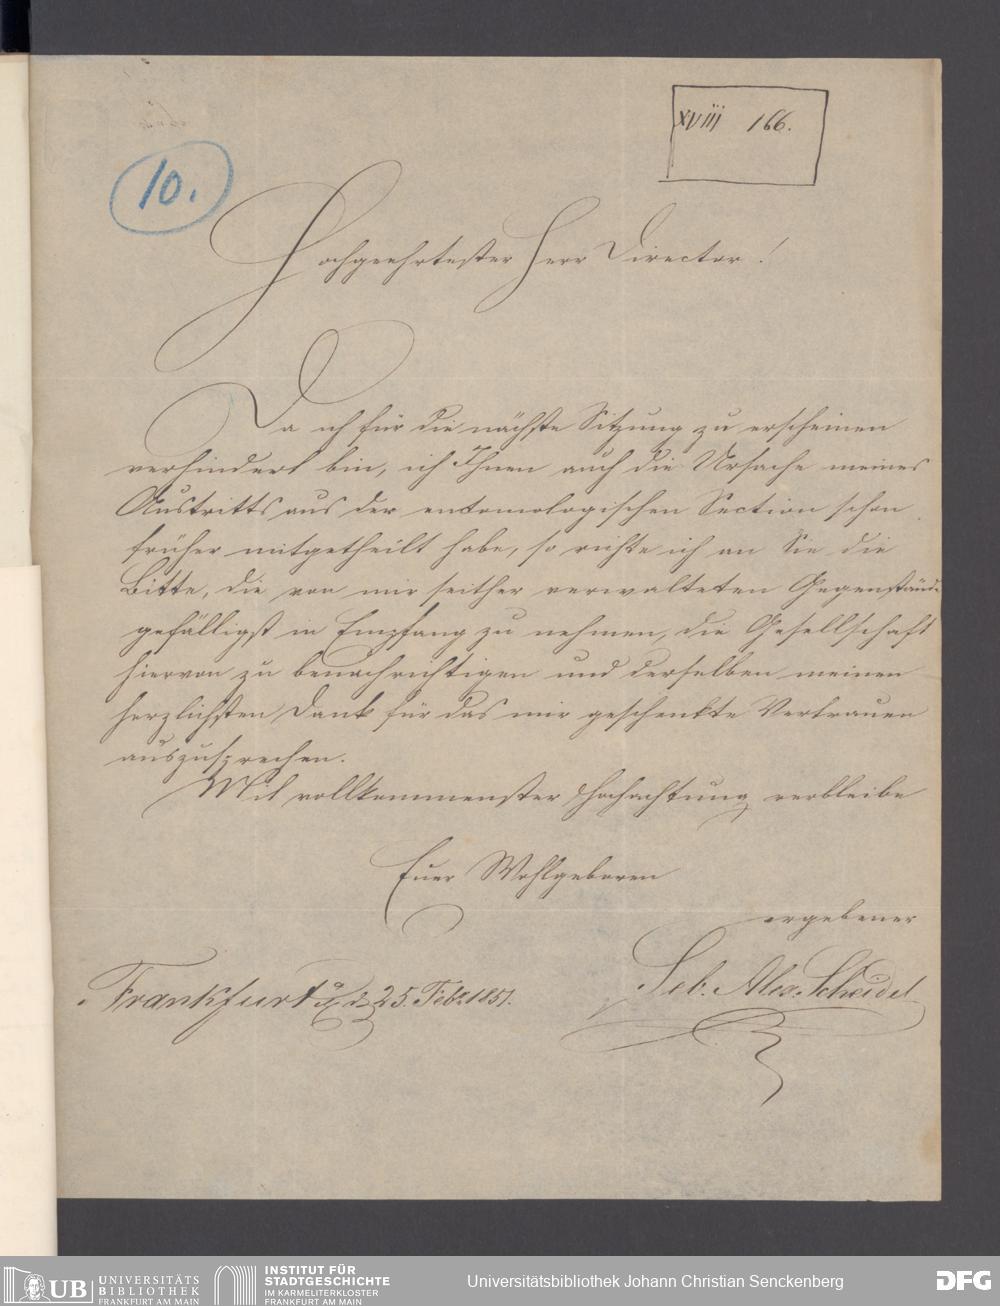 XVIII 166.
10.
Hochgeehrtester Herr Director!
Da ich für die nächste Sitzung zu erscheinen
verhindert bin, ich Ihnen auch die Ursache meines
Austritts aus der entomologischen Section schon
früher mitgetheilt habe, so richte ich an Sie die
Bitte, die von mir seither verwalteten Gegenstände
gefälligst in Empfang zu nehmen, die Gesellschaft
hiervon zu benachrichtigen und derselben meinen
herzlichsten Dank für das mir geschenkte Vertrauen
auszusprechen.
Mit vollkommenster Hochachtung verbleibe
Euer Wohlgeboren
ergebener
Seb. Alex. Scheidel
Frankfurt d. 25. Feb. 1851.
UB UNIVERSITÄTS
BIBLIOTHEK
FRANKFURT AM MAIN
INSTITUT FÜR
STADTGESCHICHTE
IM KARMELITERKLOSTER
FRANKFURT AM MAIN
Universitätsbibliothek Johann Christian Senckenberg
DFG